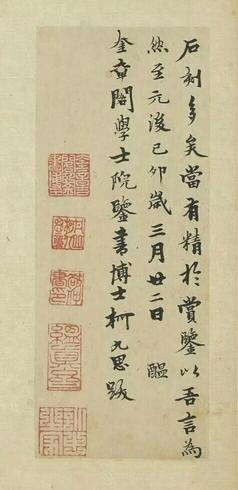 石刻多矣當有精於賞鑒以吾言為
然至元後己卯歲三月廿二日 醖
奎章閣學士院鑒書博士柯九思跋